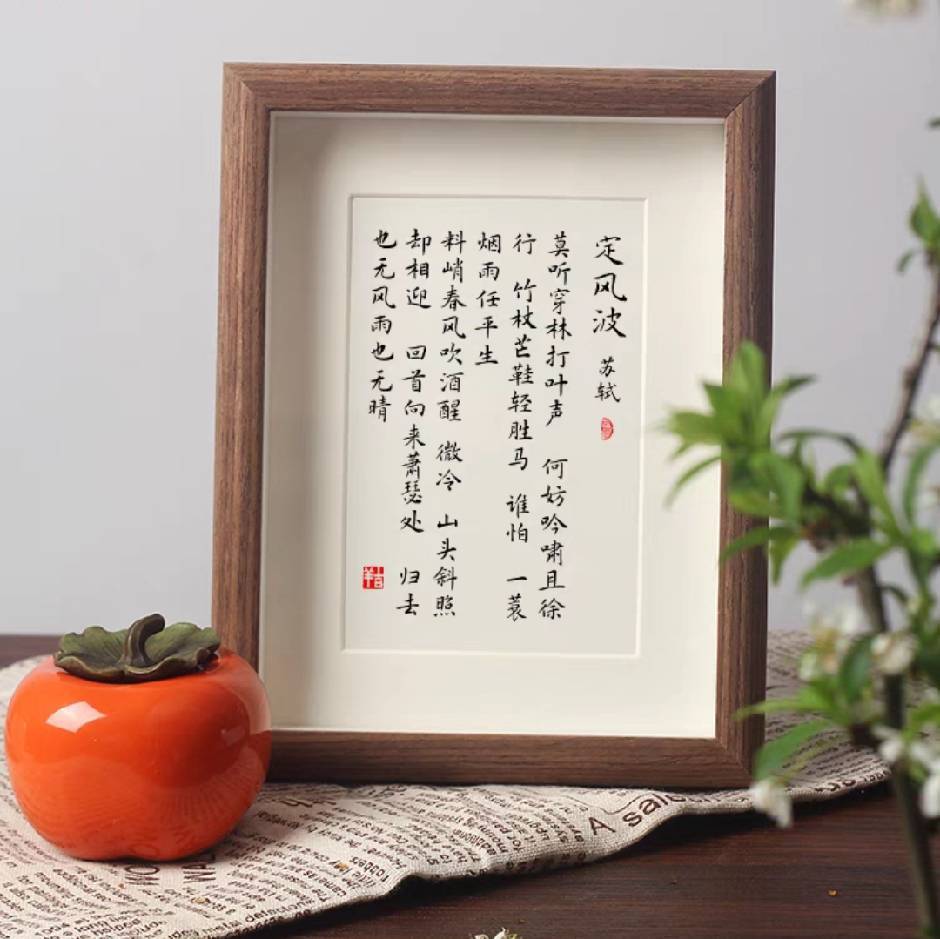 定风波
苏轼
莫听穿林打叶声 何妨吟啸且徐
行 竹杖芒鞋轻胜马 谁怕 一蓑
烟雨任平生
料峭春风吹酒醒 微冷 山头斜照
却相迎 回首向来萧瑟处 归去
也无风雨也无晴
A sal